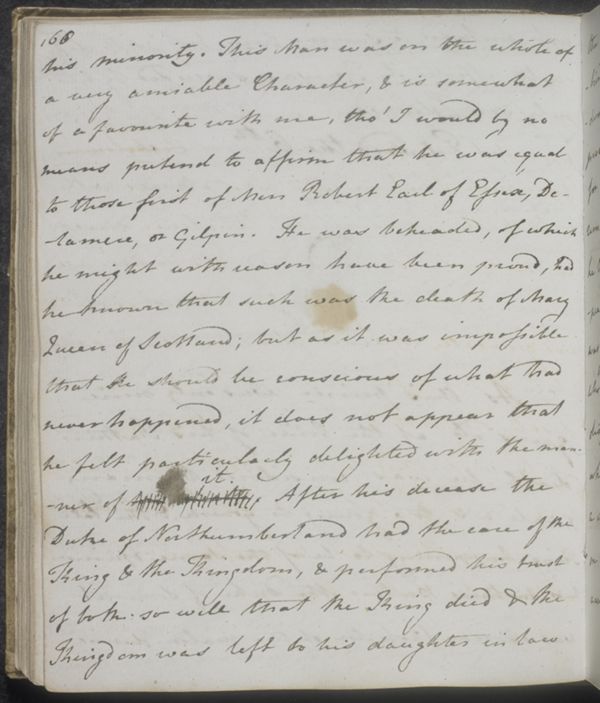 168
his minority. This Man was on the whole of
a very amiable Character, & is somewhat
of a favourite with me, tho' I would by no
means pretend to affirm that he was equal
to those first of Men Robert Earl of Essex, De-
-lamere, or Gilpin. He was beheaded, of which
he might with reason have been proud, had
he known that such was the death of Mary
Queen of Scotland; but as it was impossible
that he should be conscious of what had
never happened, it does not appear that
he felt particularly delighted with the man-
-ner of it. After his decease the
Duke of Northumberland had the care of the
King & the Kingdom, & performed his trust
of both so well that the King died & the
Kingdom was left to his daughter in law